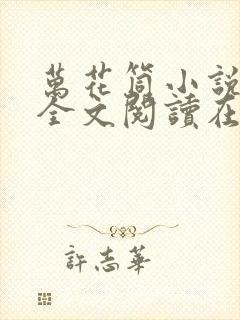 萬花筒小說
全文閱讀在
許志華